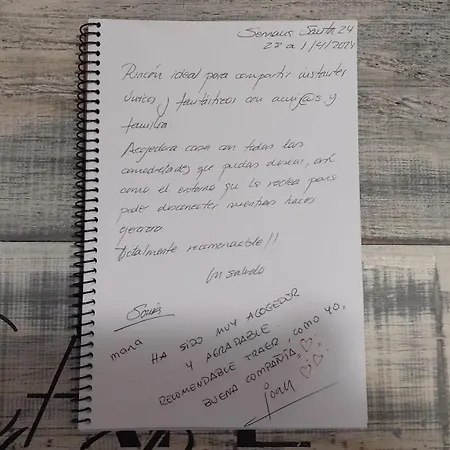 Semana Santa 24
28 a 1/4/2024
Rincón ideal para compartir instantes
únicos y fantásticos con amig@s y
familia.
Acogedora casa con todas las
comodidades que puedas desear, así
como el entorno que la rodea para
poder desconectar mientras haces
Totalmente recomendable!!
Un saludo
Sonia
HA SIDO MUY ACOGEDOR
Y AGRADABLE.
RECOMENDABLE TRAER, COMO YO,
BUENA COMPAÑÍA.